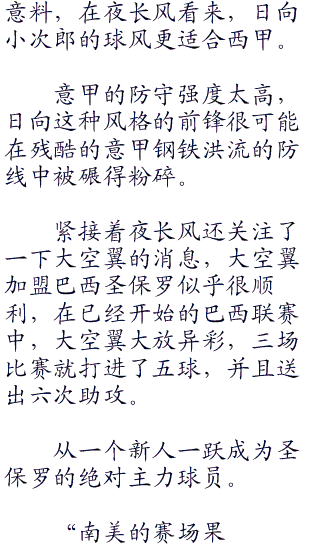 意料，在夜长风看来，日向
小次郎的球风更适合西甲。
意甲的防守强度太高，
日向这种风格的前锋很可能
在残酷的意甲钢铁洪流的防
线中被碾得粉碎。
紧接着夜长风还关注了
一下大空翼的消息，大空翼
加盟巴西圣保罗似乎很顺
利，在已经开始的巴西联赛
中，大空翼大放异彩，三场
比赛就打进了五球，并且送
出六次助攻。
从一个新人一跃成为圣
保罗的绝对主力球员。
“南美的赛场果